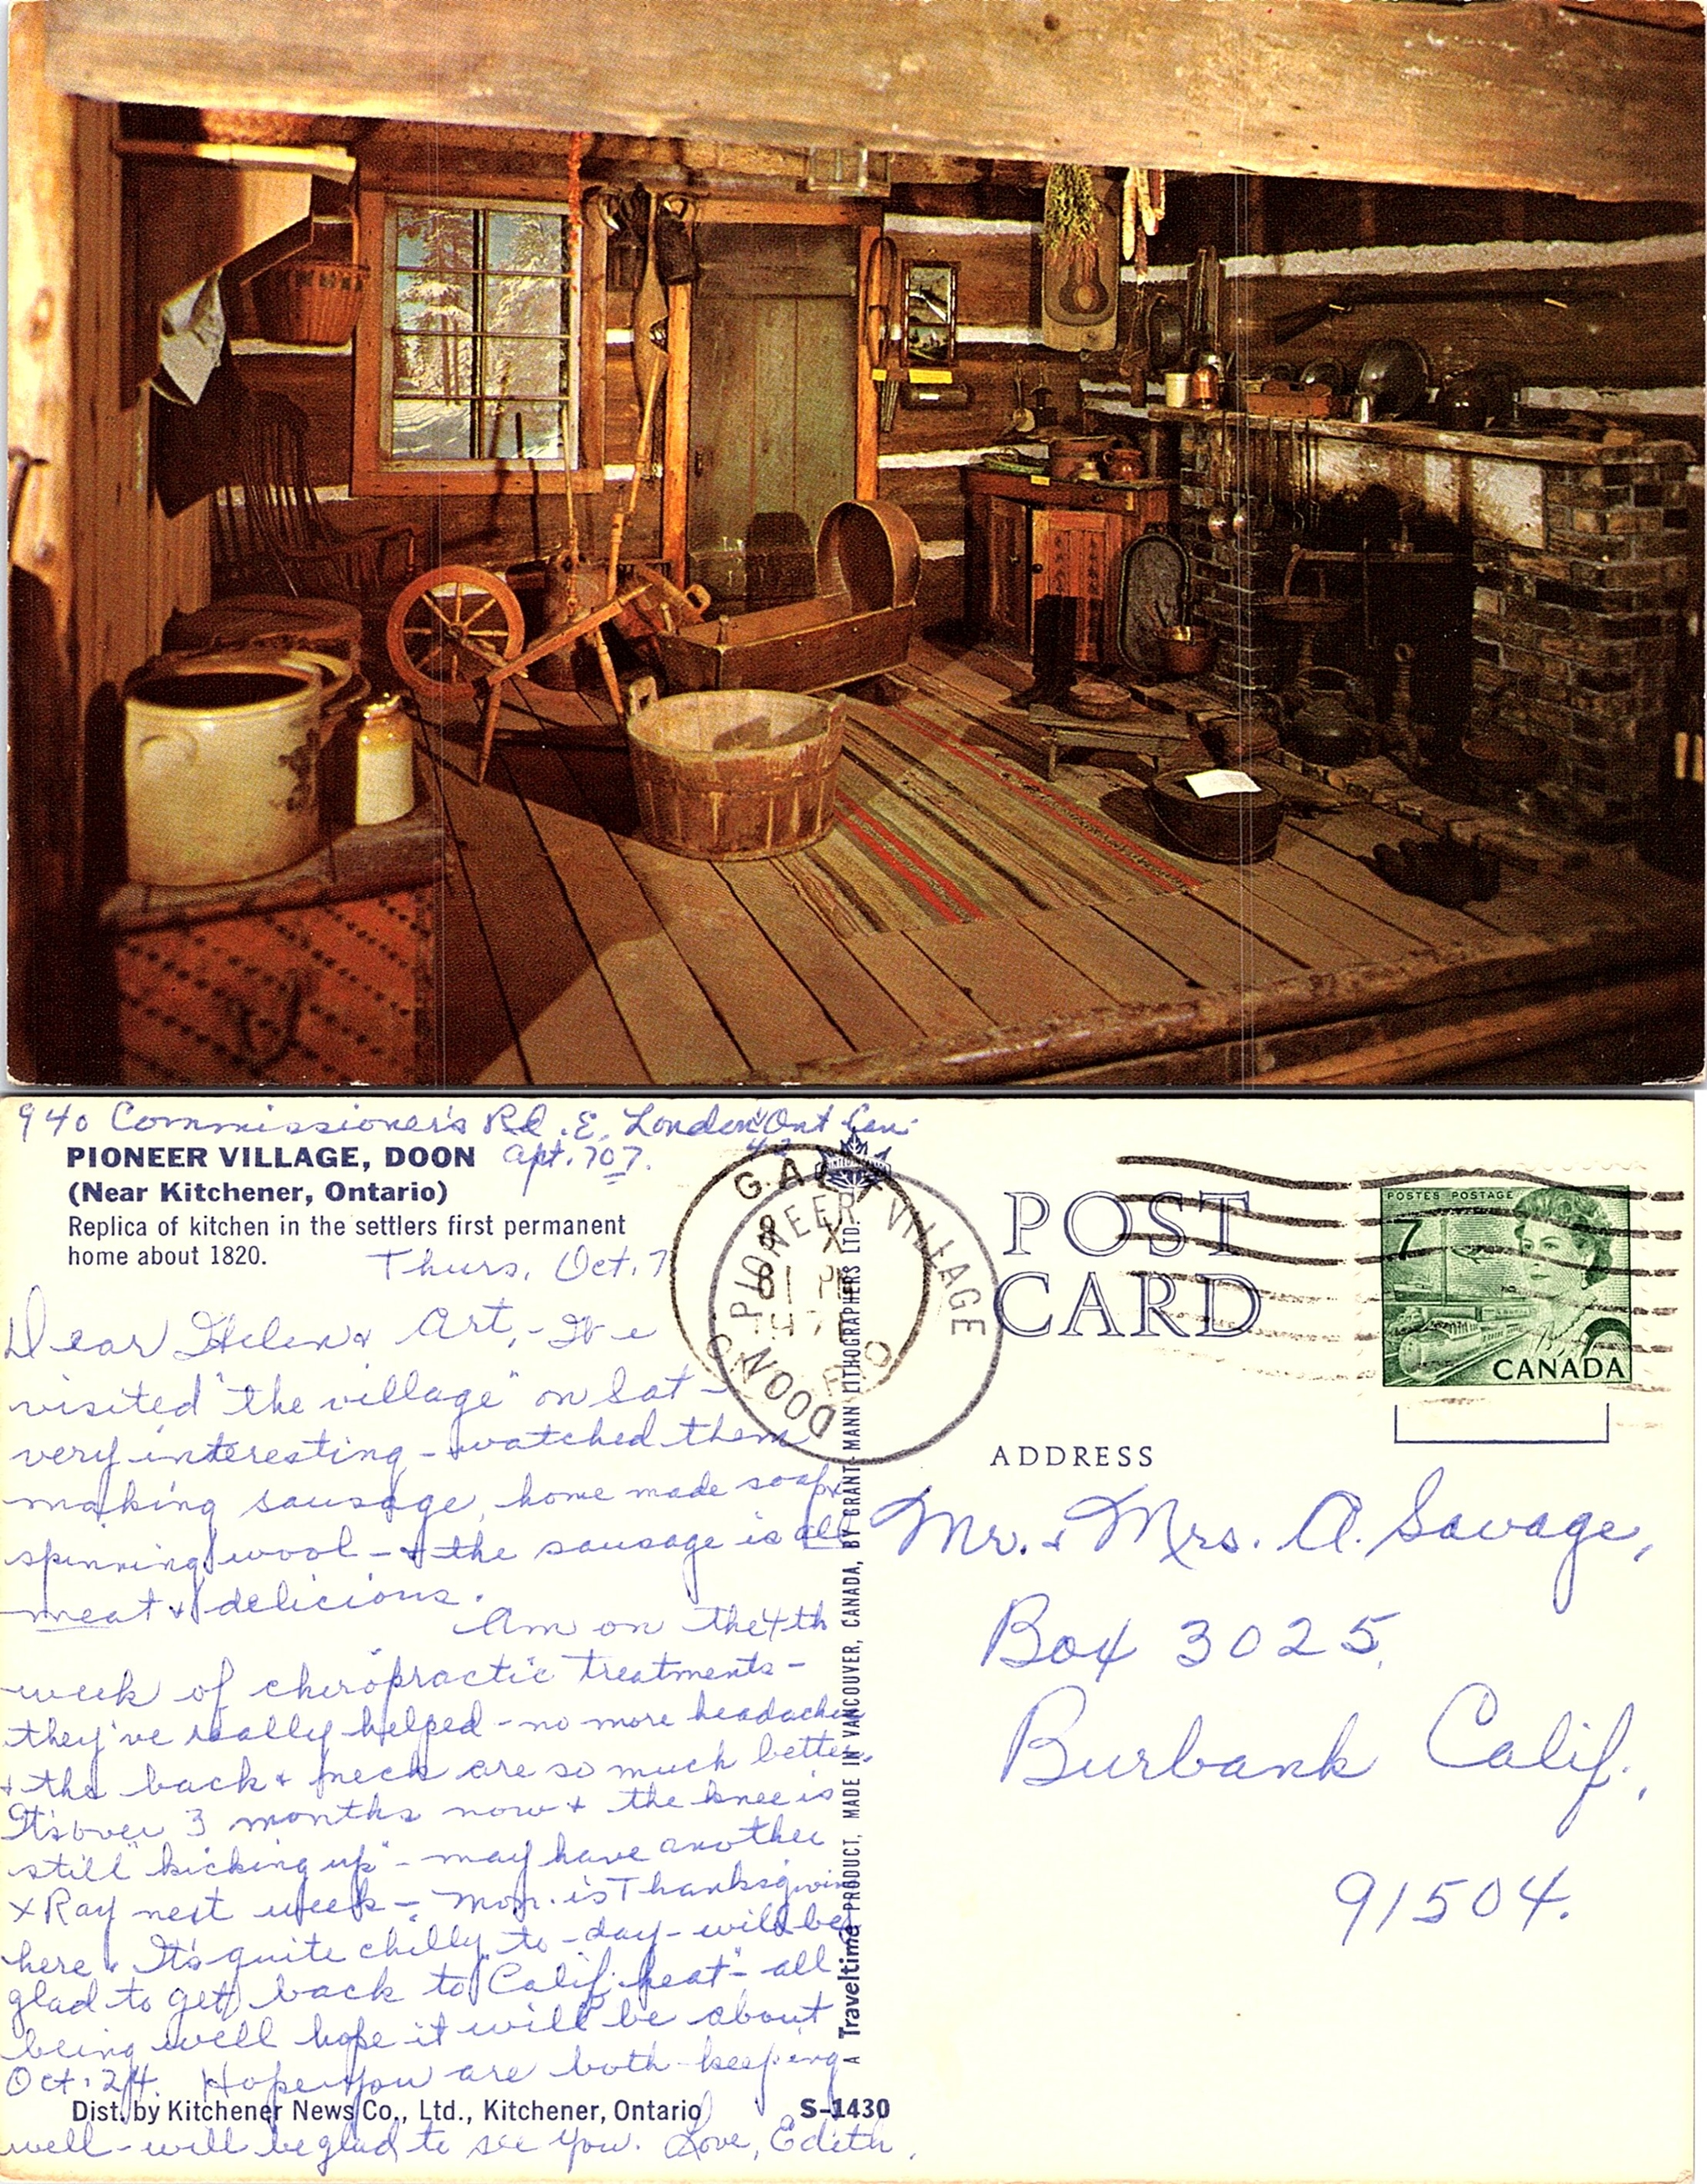 940 Commissioner's Rd. E, London Ont Can.
Apt. 707.
PIONEER VILLAGE, DOON
(Near Kitchener, Ontario)
Replica of kitchen in the settlers first permanent
home about 1820.
Thurs, Oct. 7
Dear Helen & Art, - We
visited "the village" on Sat -
very interesting - watched them
making sausage, home made soap,
spinning wool - & the sausage is all
meat & delicious.
Am on the 4th
week of chiropractic treatments -
they've really helped - no more headaches
& the back & neck are so much better.
It's over 3 months now & the knee is
still "kicking up" - may have another
X Ray next week - Mon. is Thanksgiving
here & It's quite chilly to-day - will be
glad to get back to "Calif. heat" - all
being well hope it will be about
Oct. 24. Hope you are both keeping
well - will be glad to see you. Love, Edith.
Dist. by Kitchener News Co., Ltd., Kitchener, Ontario
S-1430
A Traveltime PRODUCT, MADE IN VANCOUVER, CANADA, BY GRANT-MANN LITHOGRAPHERS LTD.
GALT
PIONEER VILLAGE
DOON
POST
CARD
POSTES POSTAGE
7
CANADA
ADDRESS
Mr. & Mrs. A. Savage,
Box 3025,
Burbank Calif.,
91504.